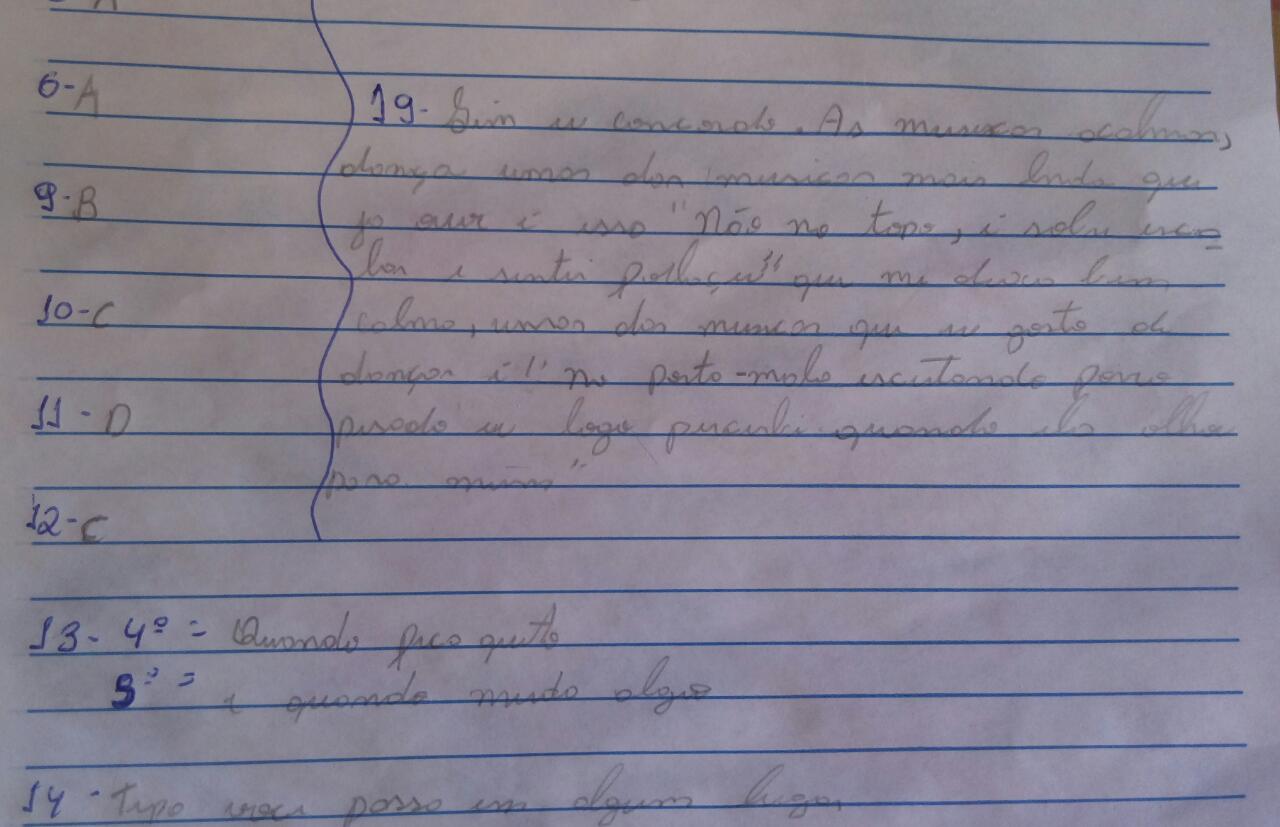 6-A
9-B
10-C
11-D
12-C
19- Sim eu concordo. As musicas acalmam,
dança umas das musicas mais linda que
ja ouvi é isso "Não no topo, é sobre esca-
lar e sentir que me deixa bem
calmo, umas das musicas que eu gosto de
dançar é "no porta-mala escutando
eu logo percebi quando ela olha
para mim"
13- 4º = Quando fica quieto
3º = é quando muda algo
14- tipo voce passa em algum lugar